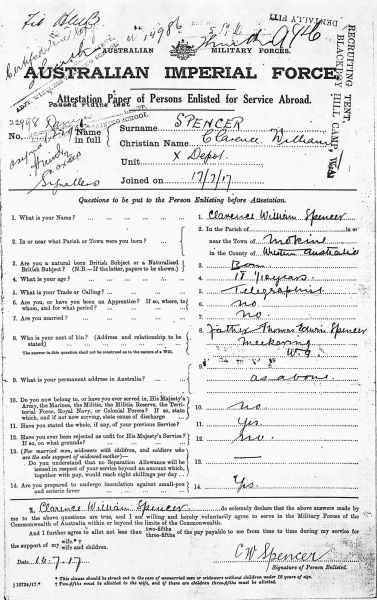 DENTALLY FIT
RECRUITING TENT
BLACKBOY HILL CAMP
AUSTRALIAN MILITARY FORCES.
AUSTRALIAN IMPERIAL FORCE
Attestation Paper of Persons Enlisted for Service Abroad.
No. Name in full
Surname SPENCER
Christian Name Clarence William
Unit X Depot
Joined on 17/7/17
Signallers
Questions to be put to the Person Enlisting before Attestation.
1. What is your Name? 1. Clarence William Spencer
2. In or near what Parish or Town were you born? 2. In the Parish of
near the Town of Mokine
in the County of Western Australia
3. Are you a natural born British Subject or a Naturalised British Subject? (N.B.—If the latter, papers to be shown.) 3. Born
4. What is your age? 4. 18 years
5. What is your Trade or Calling? 5. Telegraphist
6. Are you, or have you been an Apprentice? If so, where, to whom, and for what period? 6. no
7. Are you married? 7. no.
8. Who is your next of kin? (Address and relationship to be stated) 8. Father Thomas Edwin Spencer
Meckering
W.A.
The answer to this question shall not be construed as in the nature of a Will.
9. What is your permanent address in Australia? 9. as above.
10. Do you now belong to, or have you ever served in, His Majesty's Army, the Marines, the Militia, the Militia Reserve, the Territorial Force, Royal Navy, or Colonial Forces? If so, state which, and if not now serving, state cause of discharge 10. no
11. Have you stated the whole, if any, of your previous Service? 11. Yes.
12. Have you ever been rejected as unfit for His Majesty's Service? If so, on what grounds? 12. no.
13. (For married men, widowers with children, and soldiers who are the sole support of widowed mother)—
Do you understand that no Separation Allowance will be issued in respect of your service beyond an amount which, together with pay, would reach eight shillings per day 13. —
14. Are you prepared to undergo inoculation against small-pox and enteric fever 14. Yes.
I, Clarence William Spencer do solemnly declare that the above answers made
by me to the above questions are true, and I am willing and hereby voluntarily agree to serve in the Military Forces of the
Commonwealth of Australia within or beyond the limits of the Commonwealth.
And I further agree to allot not less than two-fifths three-fifths of the pay payable to me from time to time during my service for
the support of my wife* wife and children.†
Date 16.7.17
C W Spencer
Signature of Person Enlisted.
* This clause should be struck out in the case of unmarried men or widowers without children under 18 years of age.
† Two-fifths must be allotted to the wife, and if there are children three-fifths must be allotted.